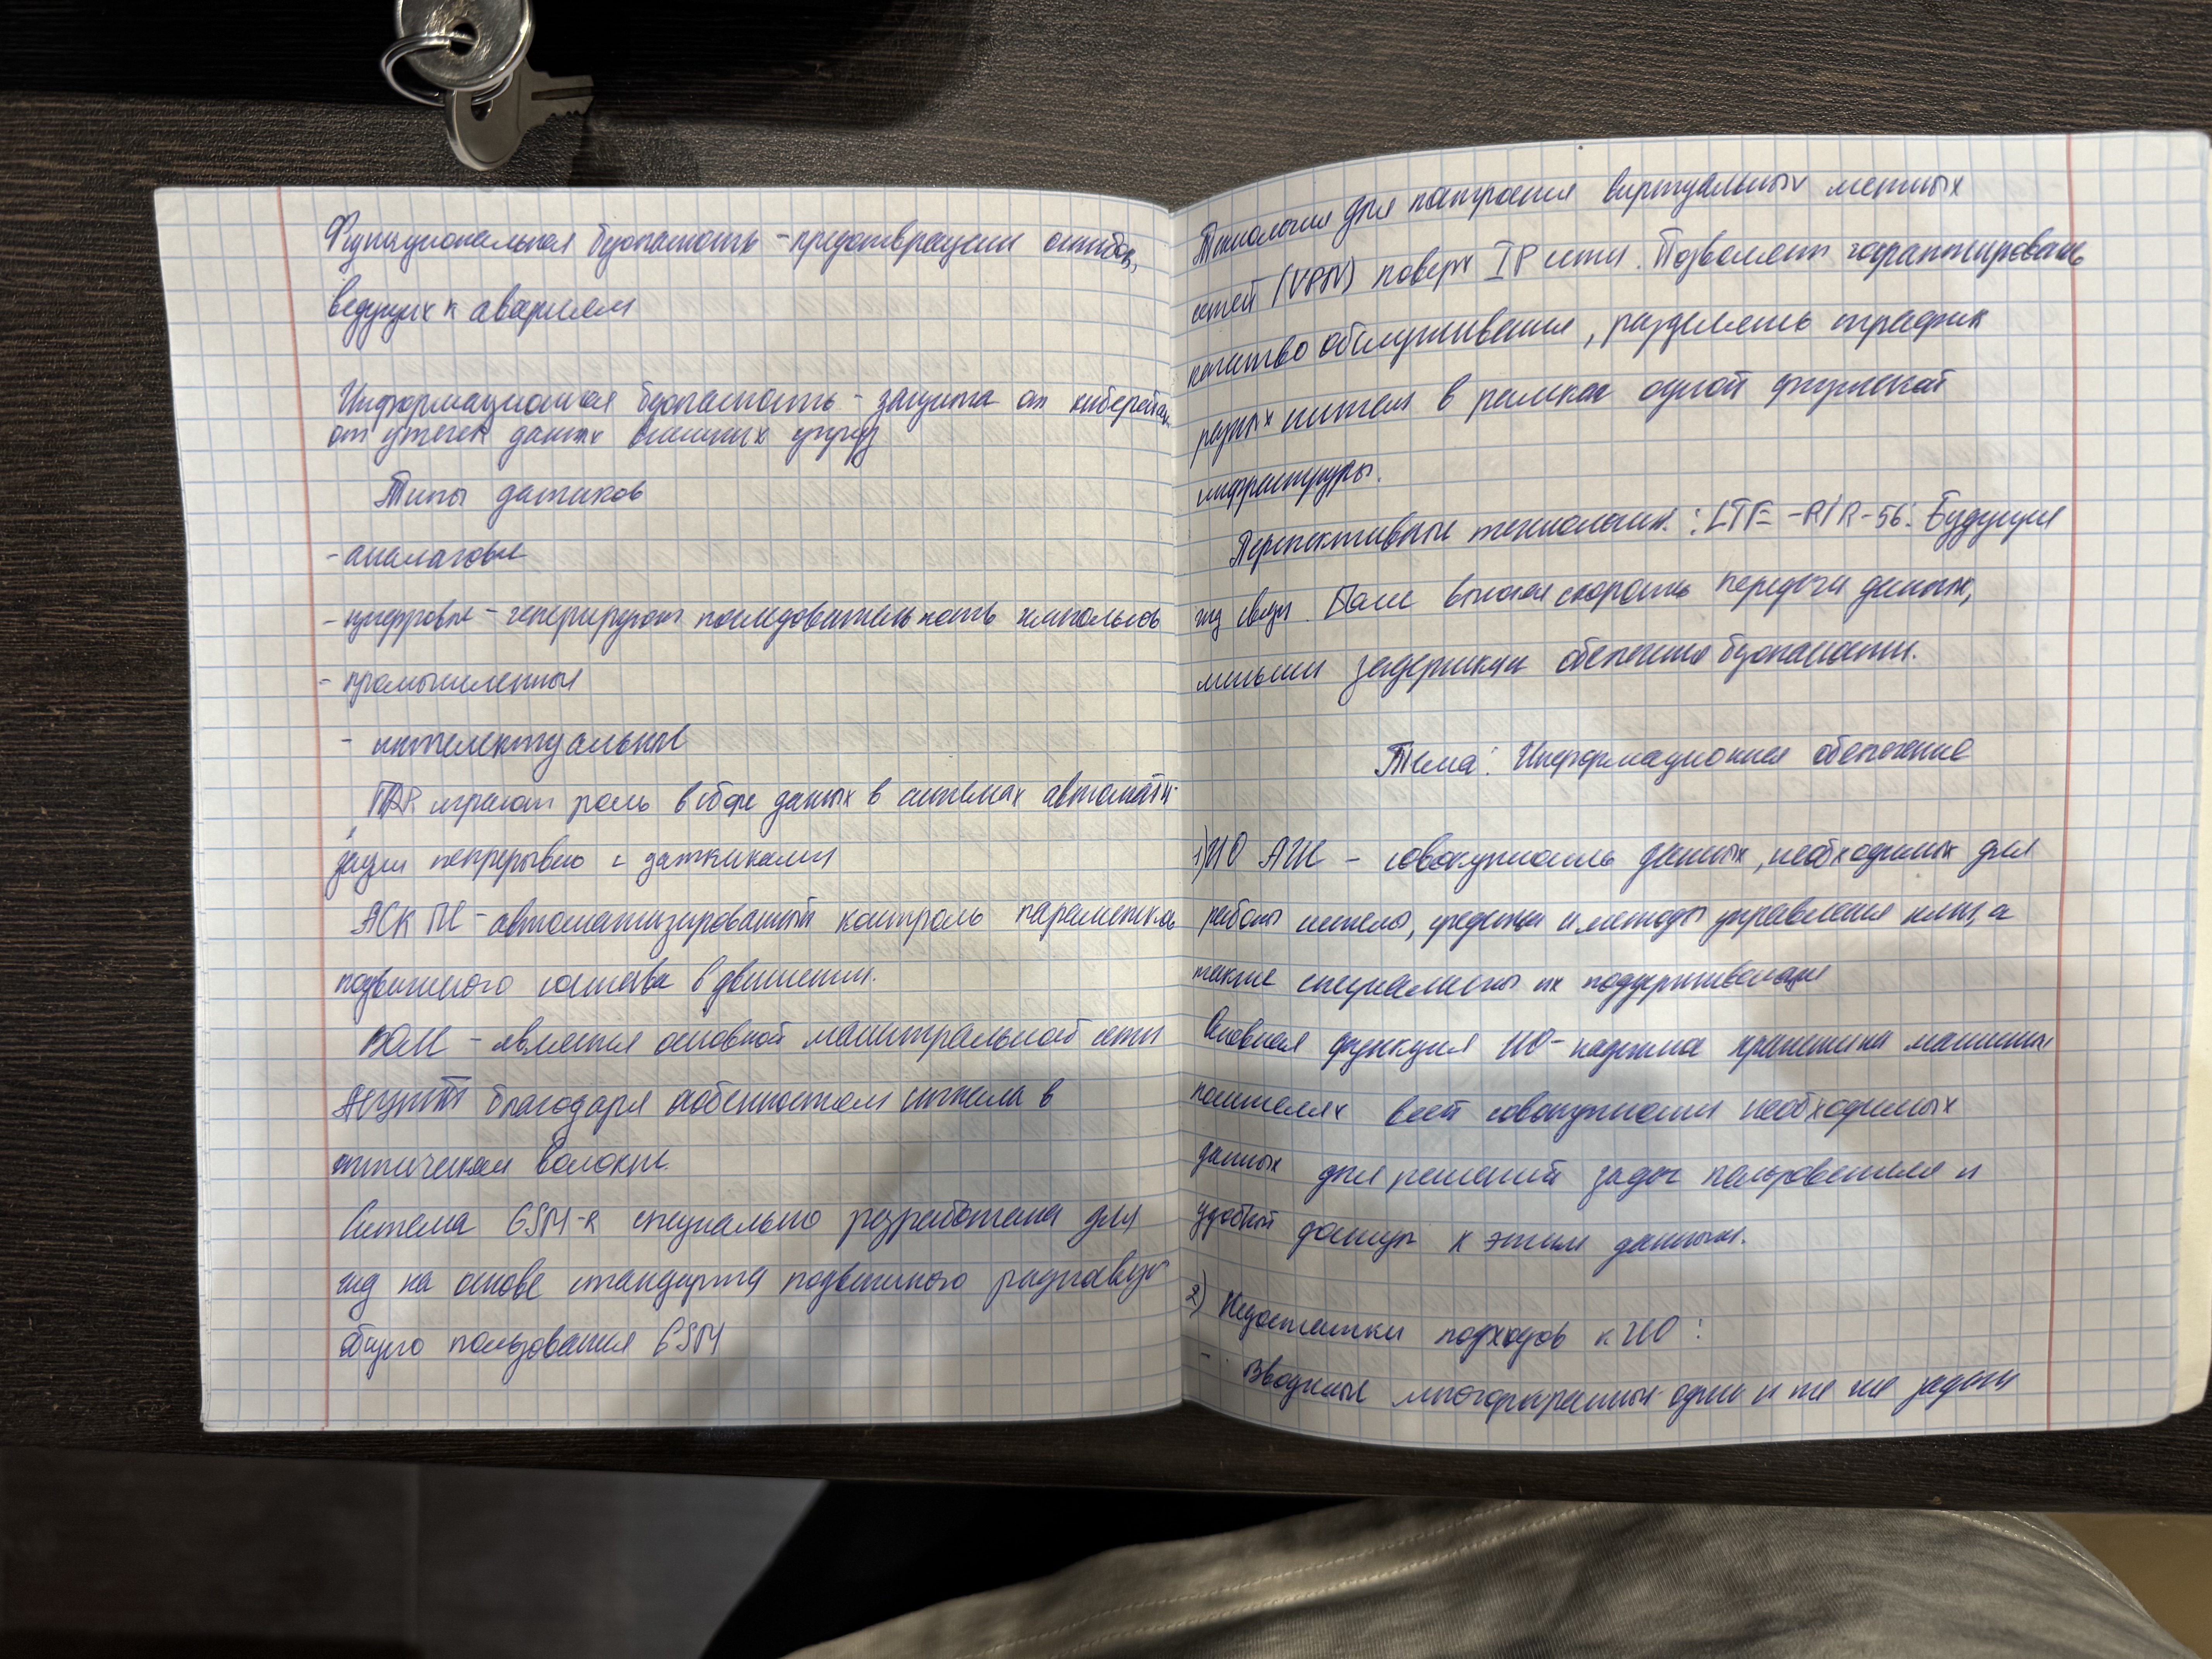 Функциональная безопасность - предотвращение ошибок,
ведущих к авариям
Информационная безопасность - защита от кибератак
от утечек данных внешних угроз
Типы датчиков
- аналоговые
- цифровые - генерируют последовательность импульсов
- промышленные
- интелектуальные
играют роль в сборе данных в системах автомати-
зации непрерывно с датчиками
АСК ПС - автоматизированный контроль параметров
подвижного состава в движении.
ВОЛС - является основной магистральной сети
благодаря особенностям сигнала в
оптическом волокне.
Система GSM-R специально разработана для
жд на основе стандарта подвижного
общего пользования GSM
Технология для построения виртуальных частных
сетей (VPN) поверх IP сети. Позволяет гарантировать
качество обслуживания, разделять трафик
разных систем в рамках одной физической
инфраструктуры.
Перспективные технологии: LTE-R/R-5G: Будущее
жд связи. Более высокая скорость передачи данных,
меньшие задержки обеспечения безопасности.
Тема: Информационное обеспечение
1) ИО АИС - совокупность данных, необходимых для
работы системы, средства и методы управления ими, а
также специалисты их поддерживающие
Основная функция ИО - надежное хранение на машинных
носителях всей совокупности необходимых
данных для решений задач пользователя и
удобный доступ к этим данным.
2) Недостатки подходов к ИО:
- Вводные многоразрешимы одни и те же задачи